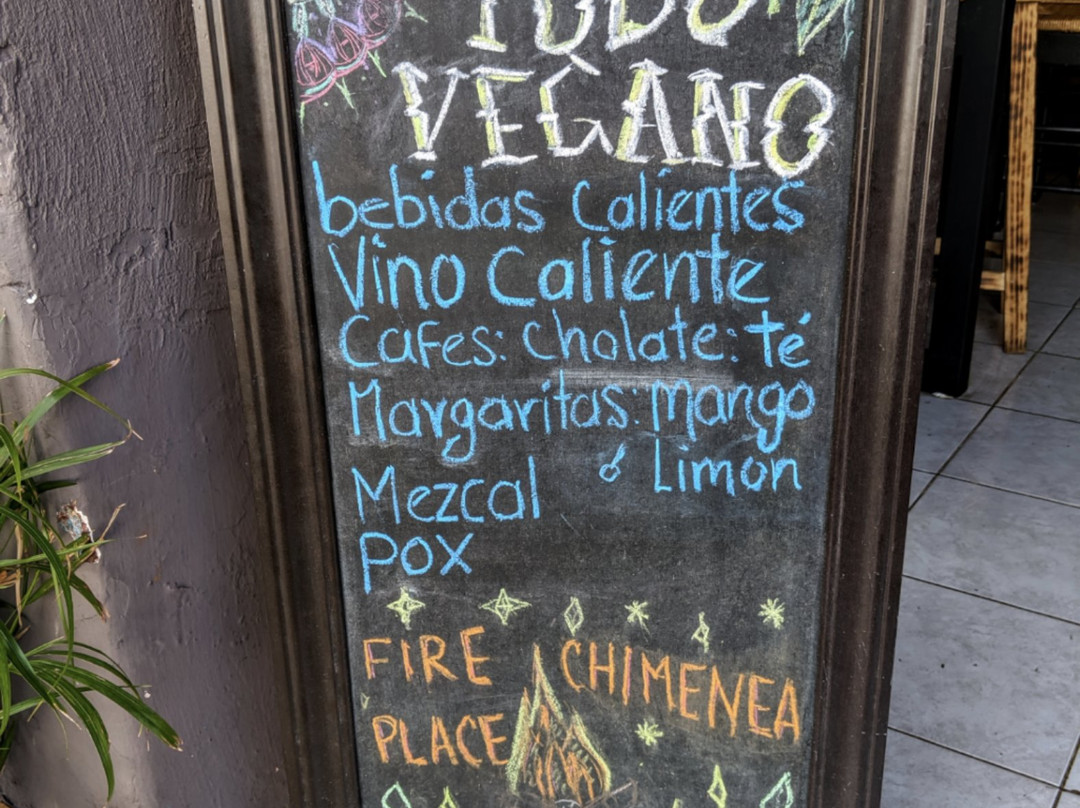 TODO
VEGANO
bebidas Calientes
Vino Caliente
Cafes: Cholate: té
Margaritas: Mango
ó Limon
Mezcal
POX
FIRE CHIMENEA
PLACE